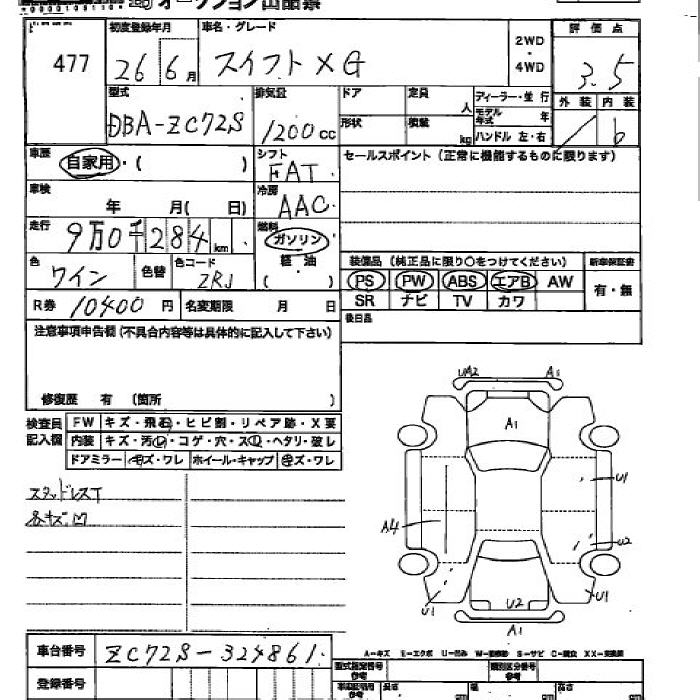 オークション出品票
477
初度登録年月
26年6月
車名・グレード
スイフト XG
2WD
・
4WD
評価点
3.5
外装 内装
/ b
型式
DBA-ZC72S
排気量
1200cc
ドア
定員
人
ディーラー・並行
形状
積載
kg
モデル年式 年
ハンドル 左・右
車歴
自家用・( )
シフト
FAT
セールスポイント(正常に機能するものに限ります)
車検
年 月( 日)
冷房
AAC
走行
9万0千284km
燃料
ガソリン
軽・油
( )
色
ワイン
色替
色コード
ZRJ
装備品(純正品に限り○をつけてください)
新車保証書
PS PW ABS エアB AW
SR ナビ TV カワ
有・無
R券 10400円
名変期限 月 日
後日品
注意事項申告欄(不具合内容等は具体的に記入して下さい)
修復歴 有(箇所 )
検査員
記入欄
FW キズ・飛石・ヒビ割・リペア跡・X要
内装 キズ・汚れ・コゲ・穴・スレ・ヘタリ・破レ
ドアミラー キズ・ワレ ホイール・キャップ キズ・ワレ
スタッドレスT
各キズ凹
UA2
A1
A1
U1
A4
U2
U1
U1
U2
A1
A-キズ E-エクボ U-凹み W-補修跡 S-サビ C-腐食 XX-交換済
車台番号 ZC72S-324861
登録番号
型式指定番号
参考
類別区分番号
参考
長さ
cm
幅
cm
高さ
cm